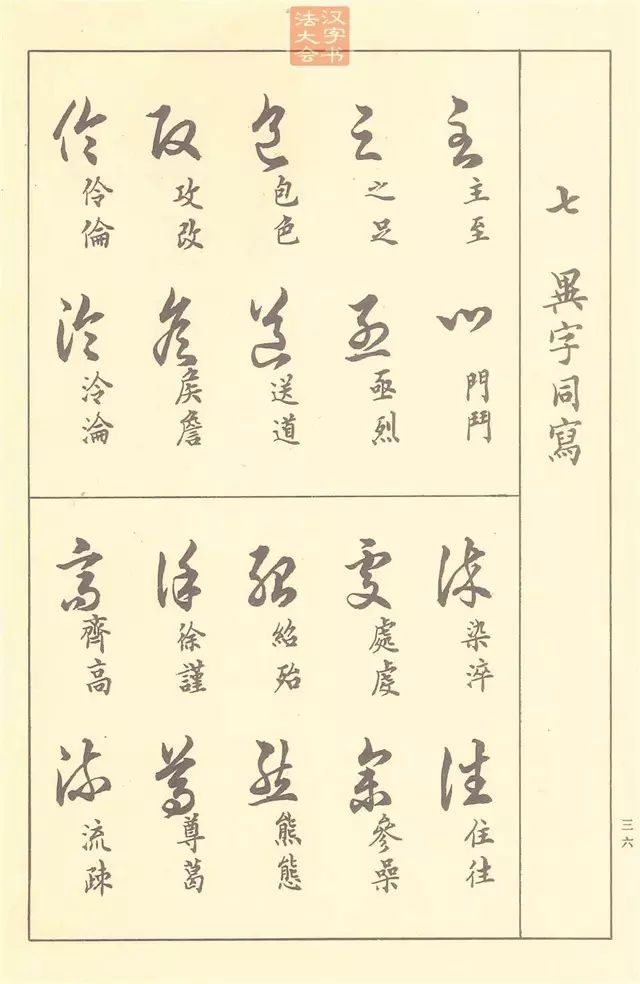 汉字书
法大会
七 異字同寫
主至
門鬥
之足
亟烈
包色
送道
攻改
矦詹
伶倫
泠淪
染淬
住往
處
參喿
紹殆
熊態
徐謹
尊葛
齊高
流疎
三六